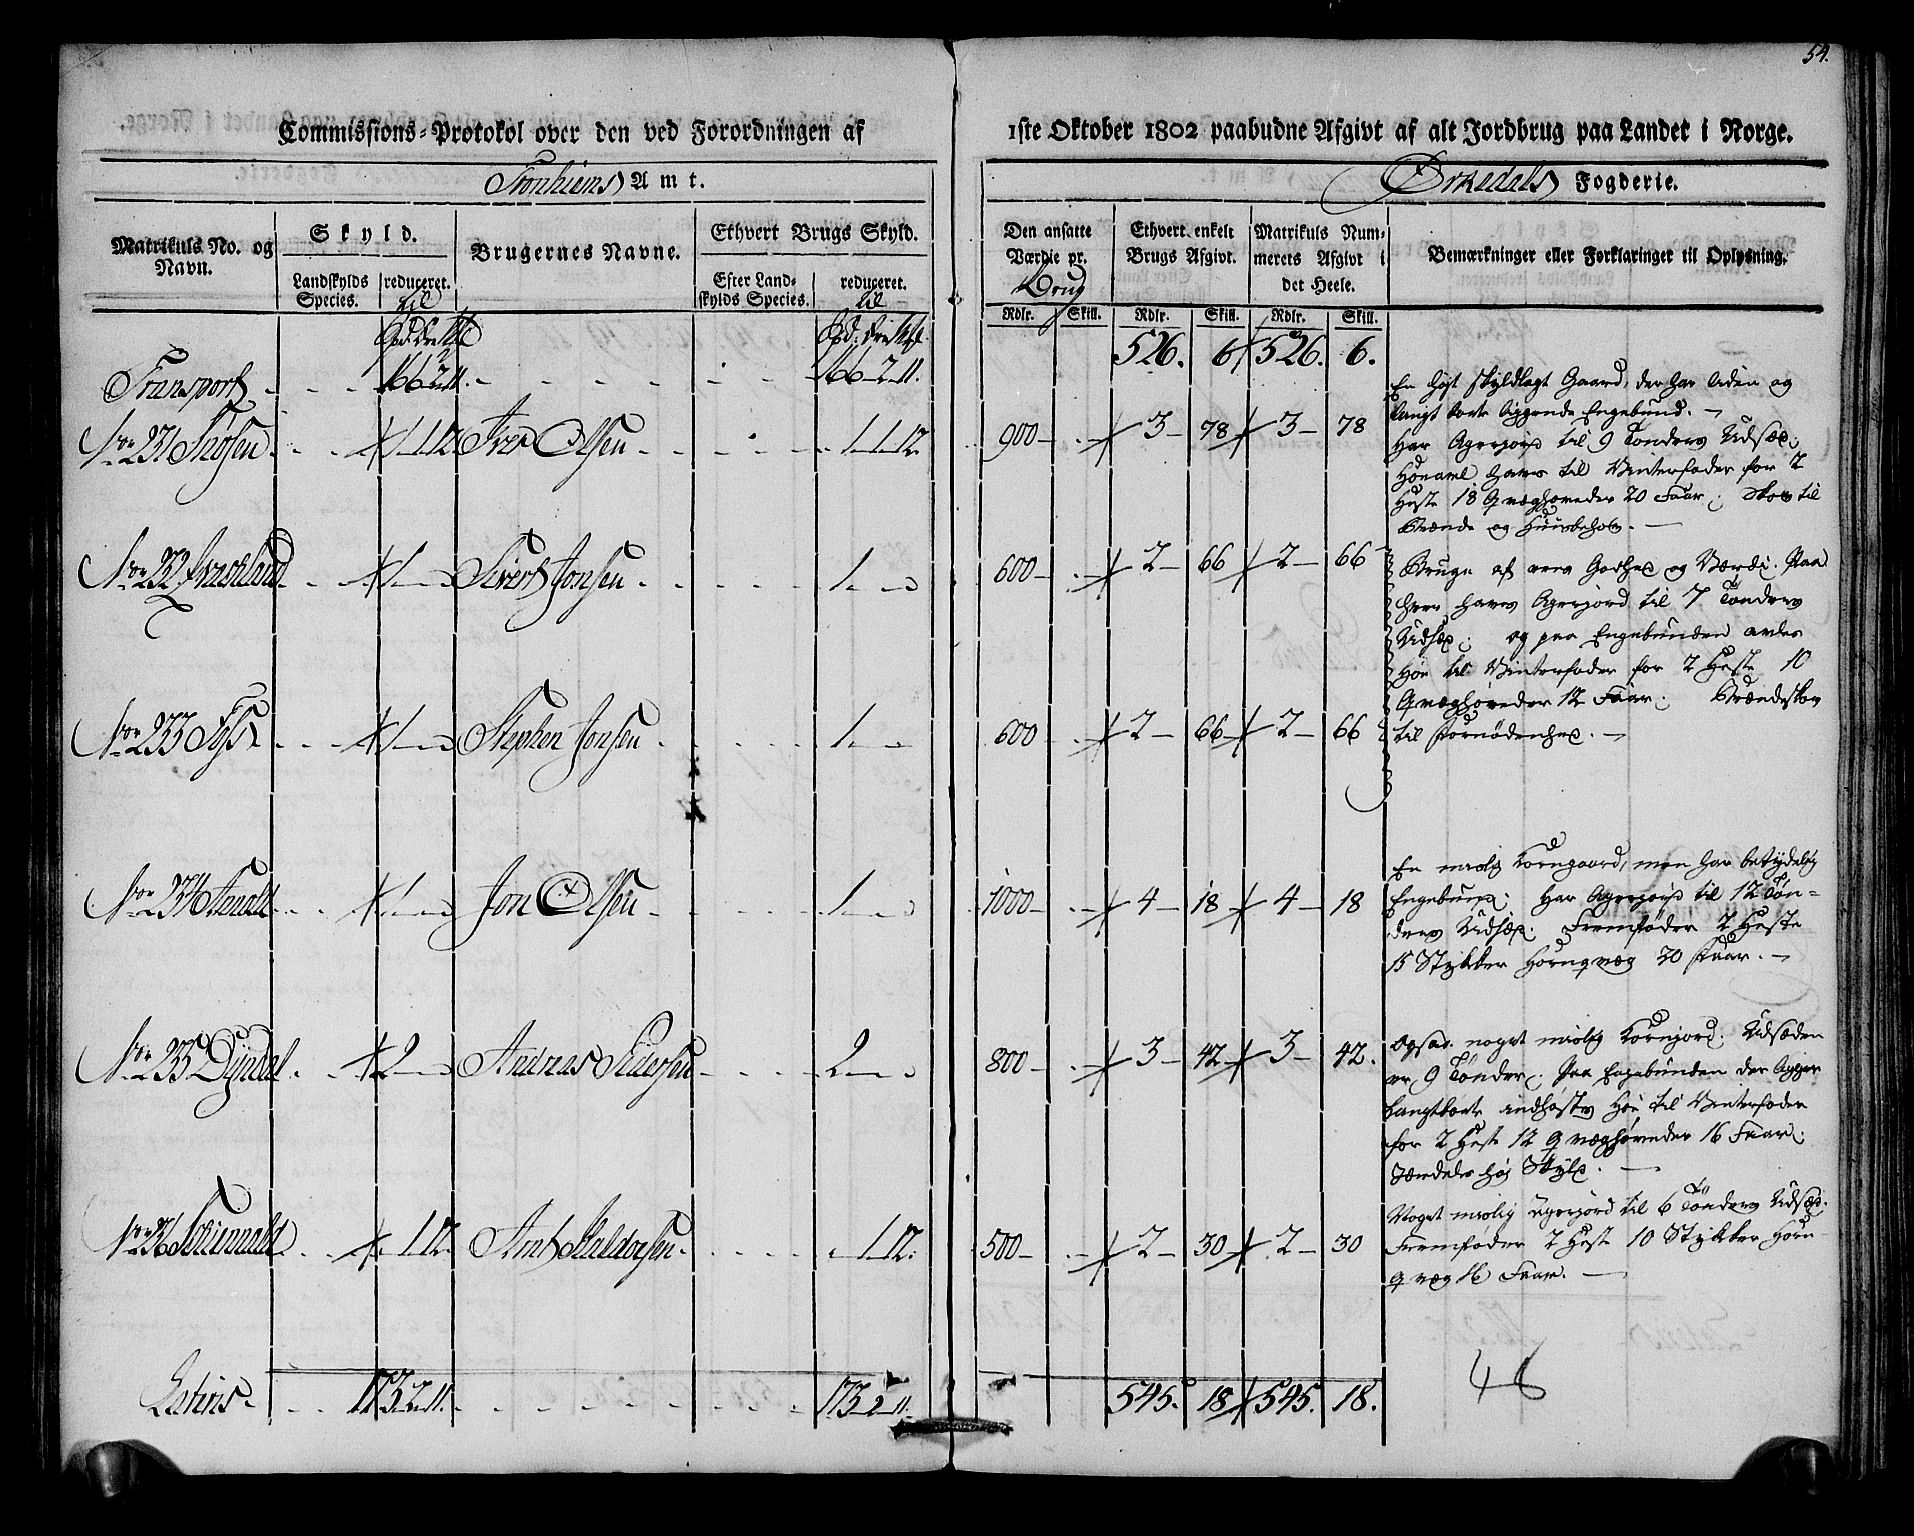 54.
Commissions-Protokol over den ved Forordningen af 1ste Oktober 1802 paabudne Afgivt af alt Jordbrug paa Landet i Norge.
Tronhiems Amt. Ørkedals Fogderie.
Matrikuls No. og Navn.
Skyld.
Landskylds Species.
reduceret. til
Brugernes Navne.
Ethvert Brugs Skyld.
Efter Landskylds Species.
reduceret. til
Den ansatte Værdie pr. Brug
Ethvert enkelt Brugs Afgivt.
Matrikuls Nummerets Afgivt i det Heele.
Bemærkninger eller Forklaringer til Oplysning.
Rdlr. Skill. Rdlr. Skill. Rdlr. Skill.
Transport 166 2 11. 166 2 11. 526. 6 526. 6.
No 231 1 1 12 Iver Olsen 1 1 12. 900 3 78 3 78
En høit skyldlagt Gaard, der har liden og
langt borte liggende Engebund.
Har Agerjord til 9 Tønders Udsæd;
Høeavl haves til Vinterfoder for 2
Heste 18 Qvæghöveder 20 Faar; Skov til
Brænde og Huusbehov.
No 232 1 Sivert Jonsen 1 600 2 66 2 66
Bruge af eens Godhed og Værdi. Paa
hver haves Agerjord til 7 Tønders
Udsæd; og paa Engebunden avles
Høe til Vinterfoder for 2 Heste 10
Qvæghøveder 12 Faar; Brændeskov
til Fornödenhed.
No 233 1 Stephen Jonsen 1 600 2 66 2 66
No 234 1 Jon Olsen 1 1000 4 18 4 18
En maalig Korngaard, men har betydelig
Engebund; Har Agerjord til 12 Tøn-
ders Udsæd. Fremføder 2 Heste
15 Stykker Hornqvæg 20 Faar.
No 235 Dyndal 2 Andreas Pedersen 2 800 3 42 3 42.
Ogsaa noget maalig Kornjord. Udsæden
er 9 Tønder; Paa Engebunden der ligger
langtborte indhøstes Høe til Vinterfoder
for 2 Heste 12 Qvæghøveder 16 Faar;
Særdeles høi Skyld.
No 236 1 12 Arnt Haldorsen 1 12. 500 2 30 2 30
Noget maalig Agerjord til 6 Tønders Udsæd.
Fremføder 2 Heste 10 Stykker Horn-
qvæg 16 Faar.
Lateris 173. 2. 11. 173 2 11. 545. 18 545. 18.
48